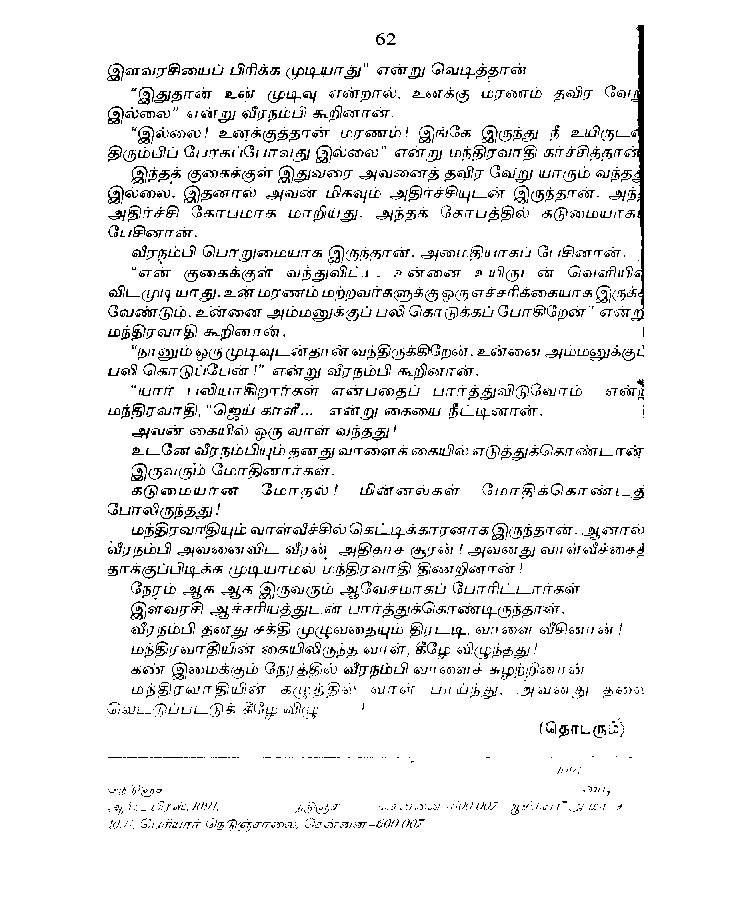 62
இளவரசியைப் பிரிக்க முடியாது" என்று வெடித்தான்
"இதுதான் உன் முடிவு என்றால், உனக்கு மரணம் தவிர வேறு
இல்லை" என்று வீரநம்பி கூறினான்.
"இல்லை! உனக்குத்தான் மரணம்! இங்கே இருந்து நீ உயிருடன்
திரும்பிப் போகப்போவது இல்லை" என்று மந்திரவாதி காச்சித்தான்
இந்தக் குகைக்குள் இதுவரை அவனைத் தவிர வேறு யாரும் வந்தது
இல்லை. இதனால் அவன் மிகவும் அதிர்ச்சியுடன் இருந்தான். அந்த
அதிர்ச்சி கோபமாக மாறியது. அந்தக் கோபத்தில் கடுமையாக
பேசினான்.
வீரநம்பி பொறுமையாக இருந்தான். அமைதியாகப் பேசினான்.
"என் குகைக்குள் வந்துவிட்ட உன்னை உயிருடன் வெளியில்
விடமுடியாது. உன் மரணம் மற்றவர்களுக்கு ஒரு எச்சரிக்கையாக இருக்க
வேண்டும். உன்னை அம்மனுக்குப் பலி கொடுக்கப் போகிறேன்" என்று
மந்திரவாதி கூறினான்.
"நானும் ஒரு முடிவுடன்தான் வந்திருக்கிறேன். உன்னை அம்மனுக்குப்
பலி கொடுப்பேன்!" என்று வீரநம்பி கூறினான்.
"யார் பலியாகிறார்கள் என்பதைப் பார்த்துவிடுவோம் என்ற
மந்திரவாதி, "ஜெய் காளீ... என்று கையை நீட்டினான்.
அவன் கையில் ஒரு வாள் வந்தது!
உடனே வீரநம்பியும் தனது வாளைக் கையில் எடுத்துக்கொண்டான்
இருவரும் மோதினார்கள்.
கடுமையான மோதல்! மின்னல்கள் மோதிக்கொண்டது
போலிருந்தது!
மந்திரவாதியும் வாள்வீச்சில் கெட்டிக்காரனாக இருந்தான். ஆனால்
வீரநம்பி அவனைவிட வீரன் அதிகாச சூரன்! அவனது வாள்வீச்சைத்
தாக்குப்பிடிக்க முடியாமல் மந்திரவாதி திணறினான்!
நேரம் ஆக ஆக இருவரும் ஆவேசமாகப் போரிட்டார்கள்
இளவரசி ஆச்சரியத்துடன் பார்த்துக்கொண்டிருந்தாள்.
வீரநம்பி தனது சக்தி முழுவதையும் திரட்டி, வாளை வீசினான்!
மந்திரவாதியின் கையிலிருந்த வாள், கீழே விழுந்தது!
கண் இமைக்கும் நேரத்தில் வீரநம்பி வாளைச் சுழற்றினான்
மந்திரவாதியின் கழுத்தில் வாள் பாய்ந்து, அவனது தலை
வெட்டுப்பட்டுக் கீழே விழு !
(தொடரும்)
600 007
பெரியார் நெடுஞ்சாலை, சென்னை–600 007